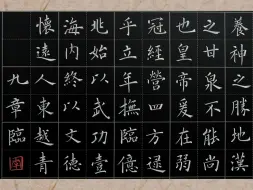 養神之勝地漢
之甘泉不能尚
也皇帝爰在弱
冠經營四方逮
乎立年撫臨億
兆始以武功壹
海內終以文德
懷遠人東越青
九章臨